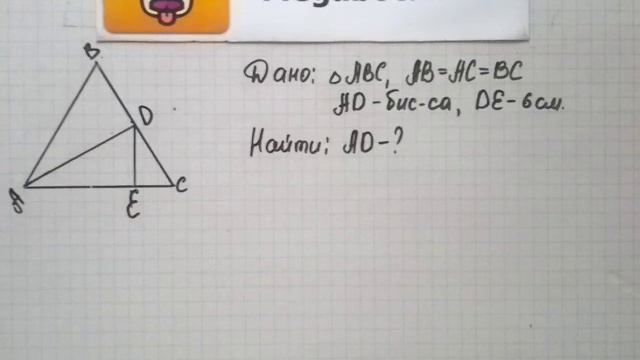 B
Дано: △ABC, AB=AC=BC
AD-бис-са, DE-6см.
D
Найти: AD-?
A
E
C